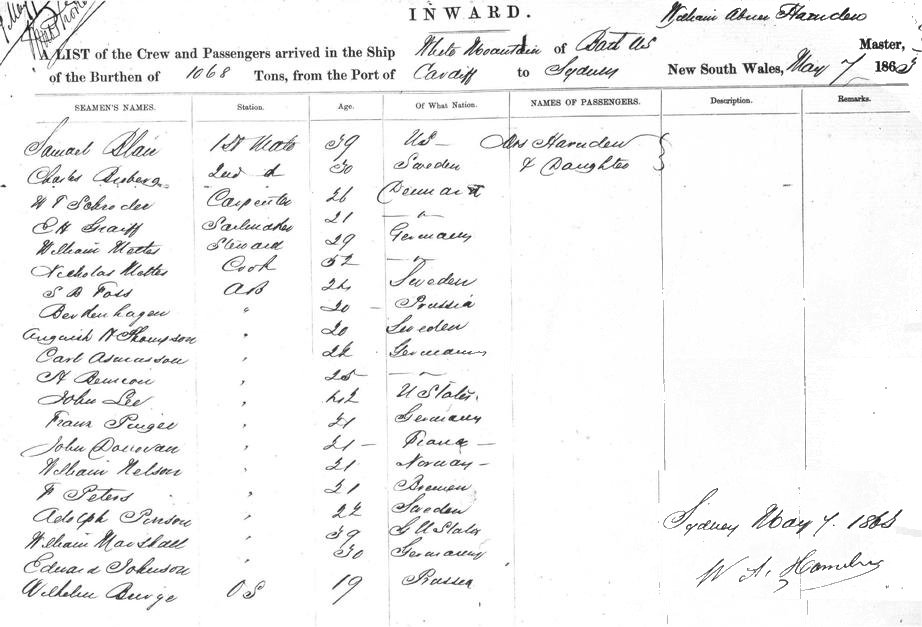 INWARD.
William Abner Harnden
A LIST of the Crew and Passengers arrived in the Ship White Mountain of Bath US Master,
of the Burthen of 1068 Tons, from the Port of Cardiff to Sydney New South Wales, May 7 186
SEAMEN'S NAMES. Station. Age. Of What Nation. NAMES OF PASSENGERS. Description. Remarks.
Samuel Blair 1st Mate 39 US Mrs Harnden
Charles 2nd d 30 Sweden & Daughter
W T Schroder Carpenter 26 Denmark
E H Sailmaker 21 — " —
William Mattes Steward 29 Germany
Nicholas Mattes Cook 52 — " —
S B Foss AB 24 Sweden
Berdenhagen " 20 Prussia
N Thompson " 20 Sweden
Carl Asmusson " 22 Germany
A Benicon " 25 — " —
John Lee " 42 U States.
Franz Pinger " 21 Germany
John Donovan " 21 France
William Nelson " 21 Norway
F Peters " 21 Bremen
Adolph Pinson " 22 Sweden
William Marshall " 39 U States
Edward Johnson " 30 Germany
Wilhelm Burge OS 19 Prussia
Sydney May 7. 186
W A. Harnden